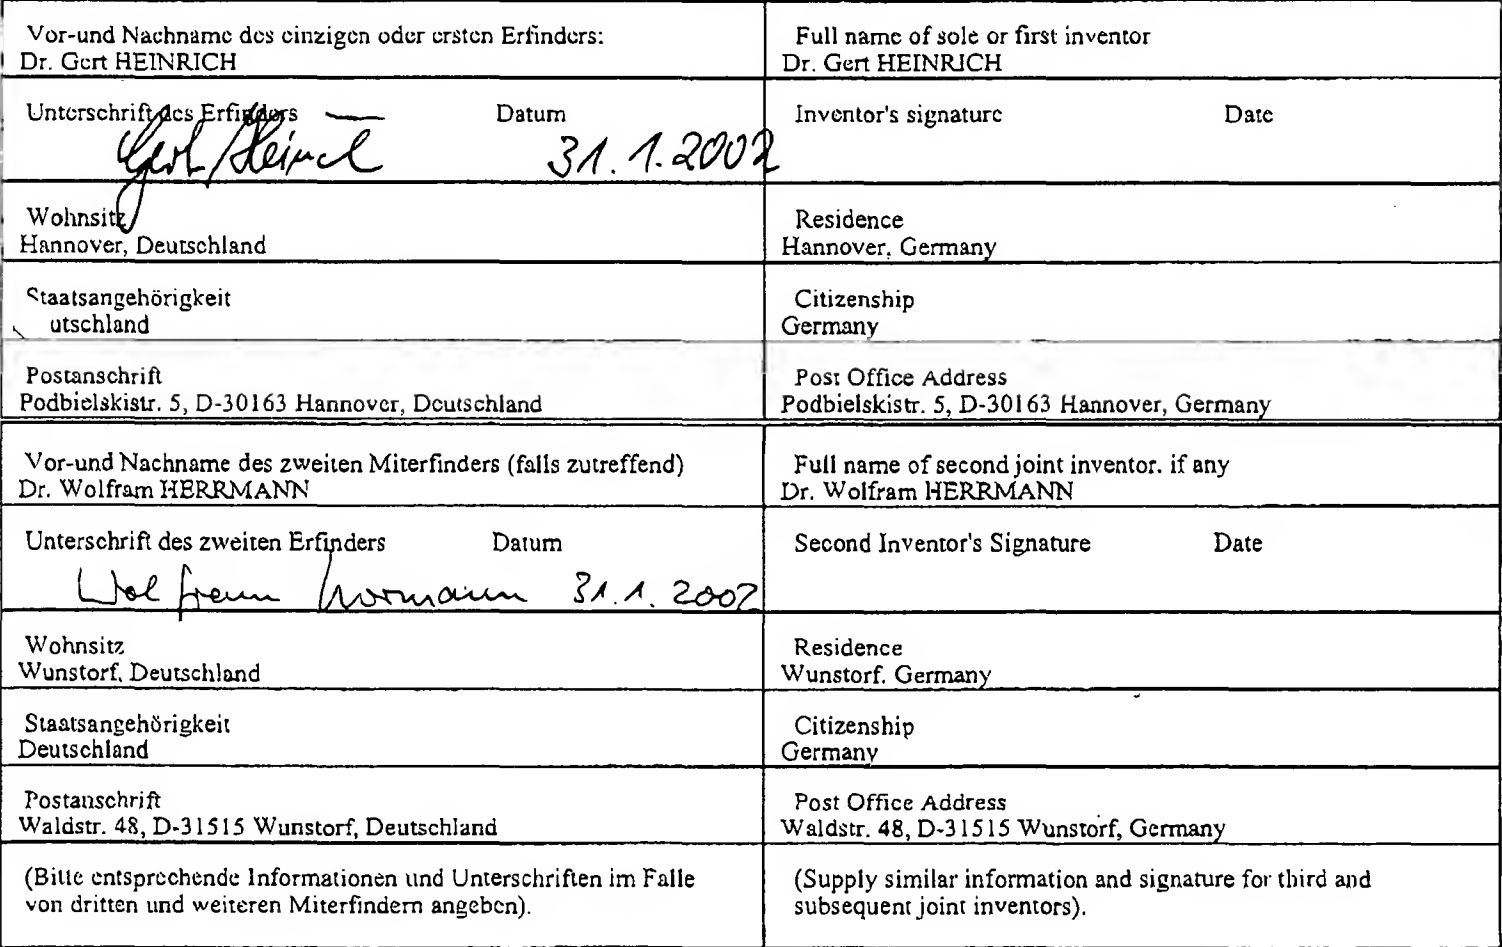 Vor-und Nachname des einzigen oder ersten Erfinders:
Dr. Gert HEINRICH
Full name of sole or first inventor
Dr. Gert HEINRICH
Unterschrift des Erfinders Datum
31.1.2002
Inventor's signature Date
Wohnsitz
Hannover, Deutschland
Residence
Hannover, Germany
Staatsangehörigkeit
utschland
Citizenship
Germany
Postanschrift
Podbielskistr. 5, D-30163 Hannover, Deutschland
Post Office Address
Podbielskistr. 5, D-30163 Hannover, Germany
Vor-und Nachname des zweiten Miterfinders (falls zutreffend)
Dr. Wolfram HERRMANN
Full name of second joint inventor. if any
Dr. Wolfram HERRMANN
Unterschrift des zweiten Erfinders Datum
Wolfram Herrmann 31.1.2002
Second Inventor's Signature Date
Wohnsitz
Wunstorf, Deutschland
Residence
Wunstorf. Germany
Staatsangehörigkeit
Deutschland
Citizenship
Germany
Postanschrift
Waldstr. 48, D-31515 Wunstorf, Deutschland
Post Office Address
Waldstr. 48, D-31515 Wunstorf, Germany
(Bitte entsprechende Informationen und Unterschriften im Falle
von dritten und weiteren Miterfindern angeben).
(Supply similar information and signature for third and
subsequent joint inventors).